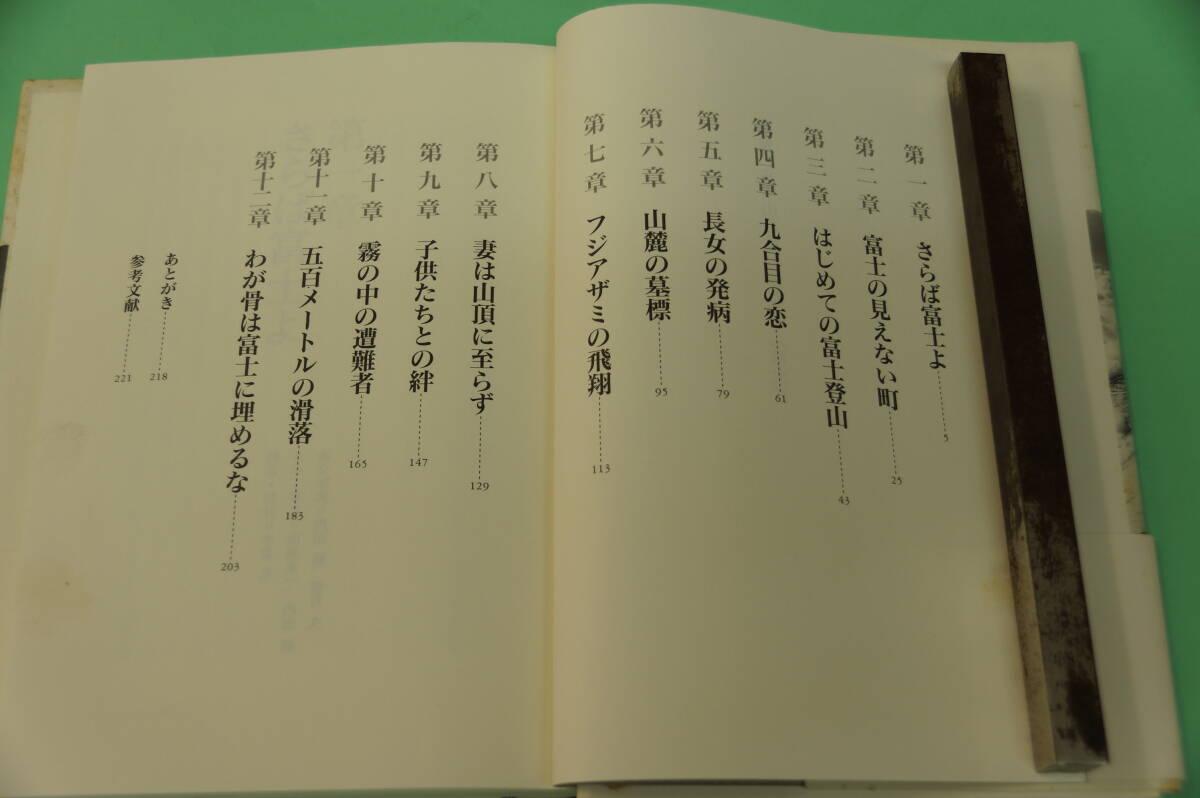 第一章 さらば富士よ 5
第二章 富士の見えない町 25
第三章 はじめての富士登山 43
第四章 九合目の恋 61
第五章 長女の発病 79
第六章 山麓の墓標 95
第七章 フジアザミの飛翔 113
第八章 妻は山頂に至らず 129
第九章 子供たちとの絆 147
第十章 霧の中の遭難者 165
第十一章 五百メートルの滑落 183
第十二章 わが骨は富士に埋めるな 203
あとがき 218
参考文献 221